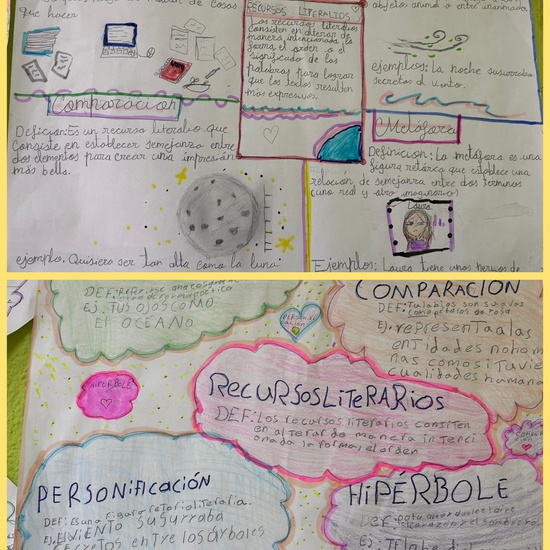 que hacer
RECURSOS LITERARIOS
Los recursos literarios
consisten en alterar de
manera intencionada la
forma el orden o el
significado de las
palabras para lograr
que los textos resulten
más expresivos.
objeto animal o entre inanimado
ejemplos: La noche susurraba
secretos al viento.
Comparacion
Definición: Es un recurso literario que
consiste en establecer semejanza entre
dos elementos para crear una impresión
más bella.
ejemplo: Quisiero ser tan alta como la luna
Metáfora
Definicion: La metáfora es una
figura retórica que establece una
relación de semejanza entre dos terminos
(uno real y otro imaginario)
Laura
Ejemplos: Laura tiene unos nervios de
EJ. TUS OJOS COMO
El OCEANO
PERSONIFI
CACIÓN
COMPARACIÓN
DEF: Tu labios son suaves
como petalos de rosa
EJ: representa a las
entidades no hom
nas como si tuvie
cualidades humana
HIPÉRBOLE
RECURSOS LiTeRARIOS
DEF: Los recursos literarios consiten
en alterar de manera intenci
onada la forma, el orden
PERSONIFICACIÓN
DEF: Es una figura retorica literalia.
EJ. El VIENTO SUSURRABA
SECRETOS entre los árboles
HIPÉRBOLE
DEF:
EJ: